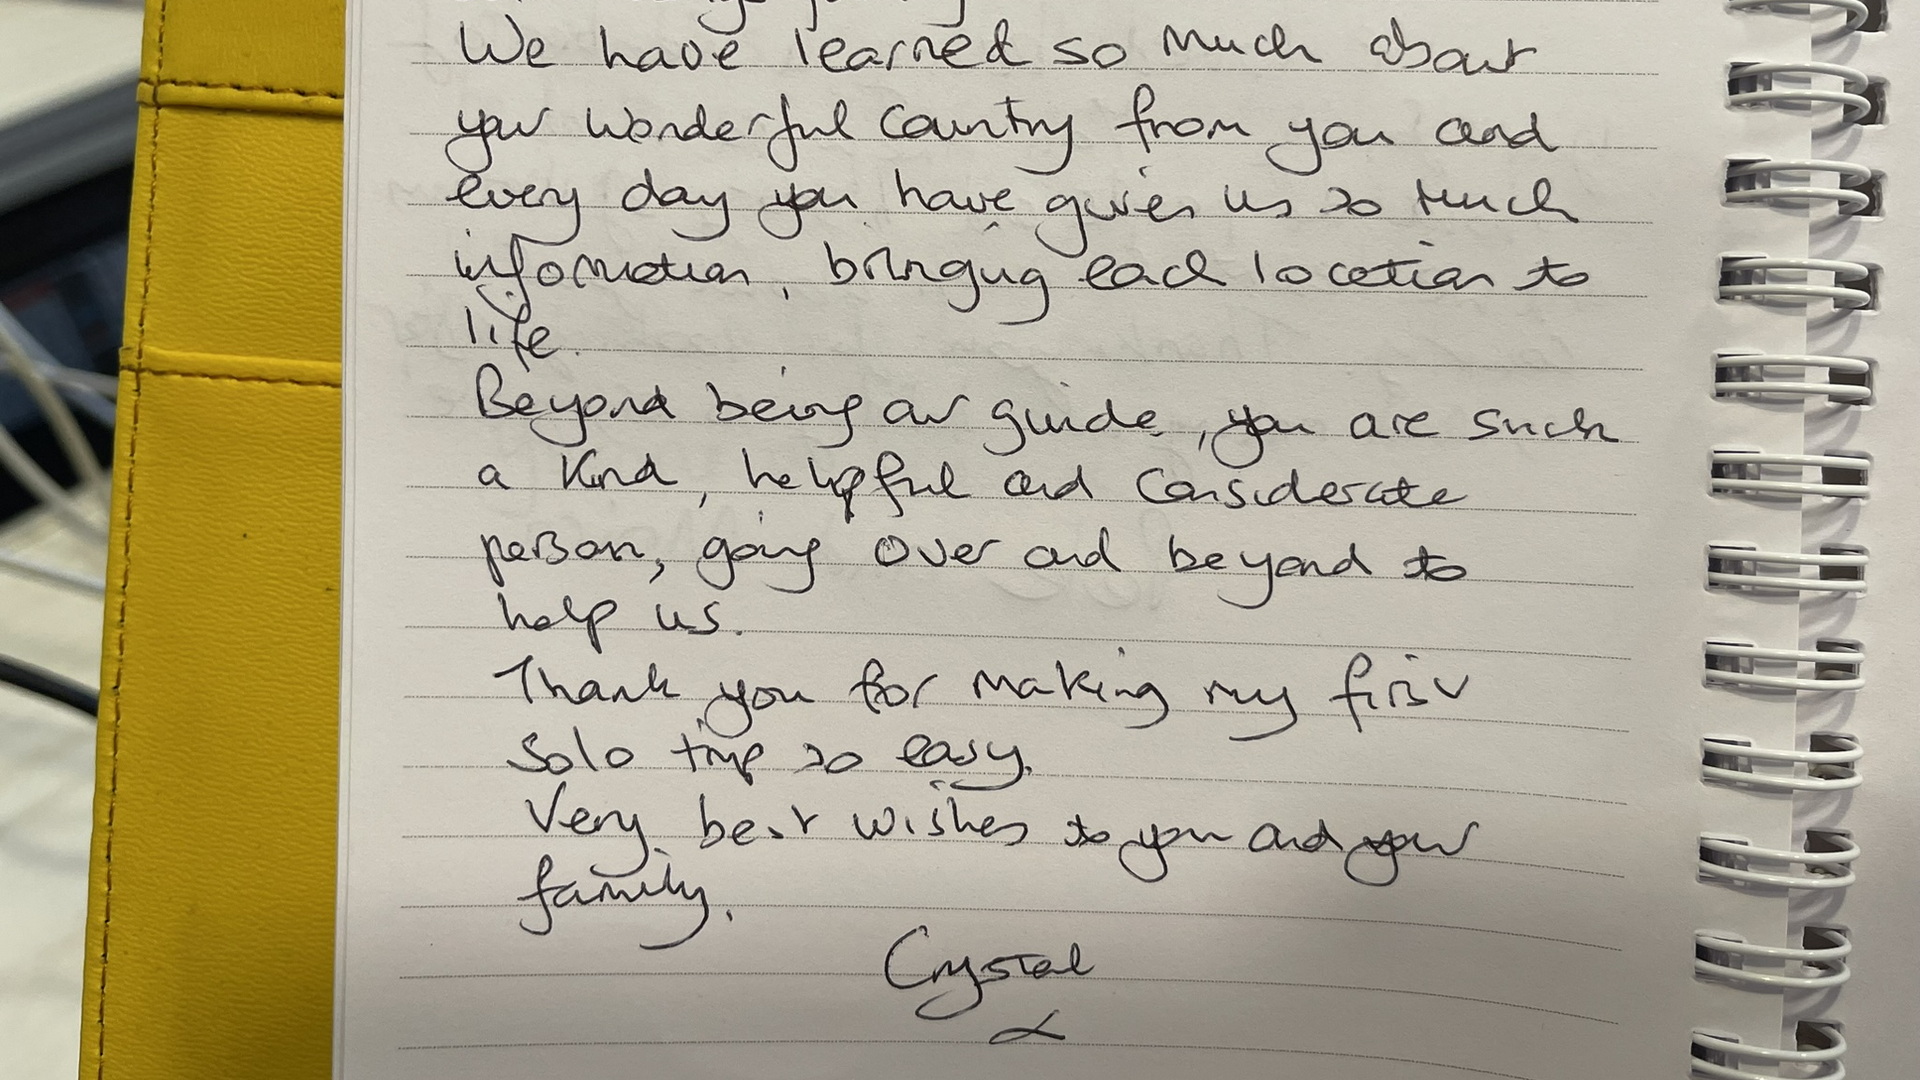 We have learned so much about
your wonderful country from you and
every day you have given us so much
information, bringing each location to
life.
Beyond being our guide, you are such
a kind, helpful and considerate
person, going over and beyond to
help us.
Thank you for making my first
solo trip so easy.
Very best wishes to you and your
family.
Crystal
x